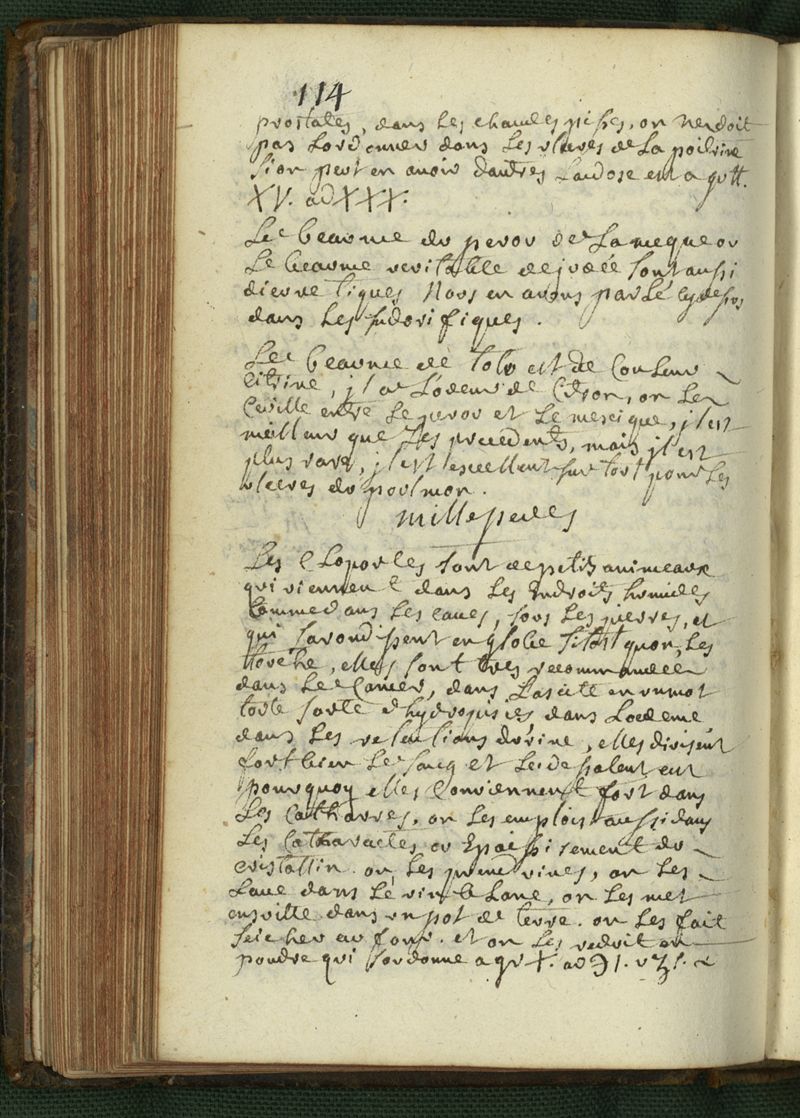 114
prostates, dans les chaudes pisses, on ne doit
pas lordonner dans les ulceres de la poidrine
si on peut en avoir dautres La dose est a gutt.
XV. ad XXX.
Le beaume du perou de La meque ou
Le beaume veritable de judée sont aussi
diuretiques Nous en avons parlé cy dessus
dans Les sudorifiques.
Le beaume de tolu est de Couleur
Citrine, jl a Lodeur de Citron, on Le
Ceuille entre Le perou et Le mexique, jl est
meilleur que Les precedents, mais jl est
plus rare, jl est excellent sur tout pour Les
ulceres du poulmon.
millepedes
Les Cloportes sont de petits animeaux
qui viennent dans Les Endroits humides
Comme dans Les caves, sous Les pierres, et
qui sarondissent en globe sitost quon Les
touche, elles sont tres recommandée
dans Le Cancer, dans Lascite en un mot
toute sorte dhydropisies, dans Loedeme
dans Les retentions durine, elles divisent
fort bien Le sang et Le depalent est
pourquoy elles Conviennent fort dans
Les Catharres, on Les emplois aussi dans
Les Catharactes ou Epaissisement du
cristallin. on Les prend vives, on Les
Lave dans Le vin blanc, on Les met
ensuitte dans un pot de terre. on Les fait
seicher au four. et on Les reduit en
poudre qui sordonne a gr X. ad ℈1. v ʒſ.